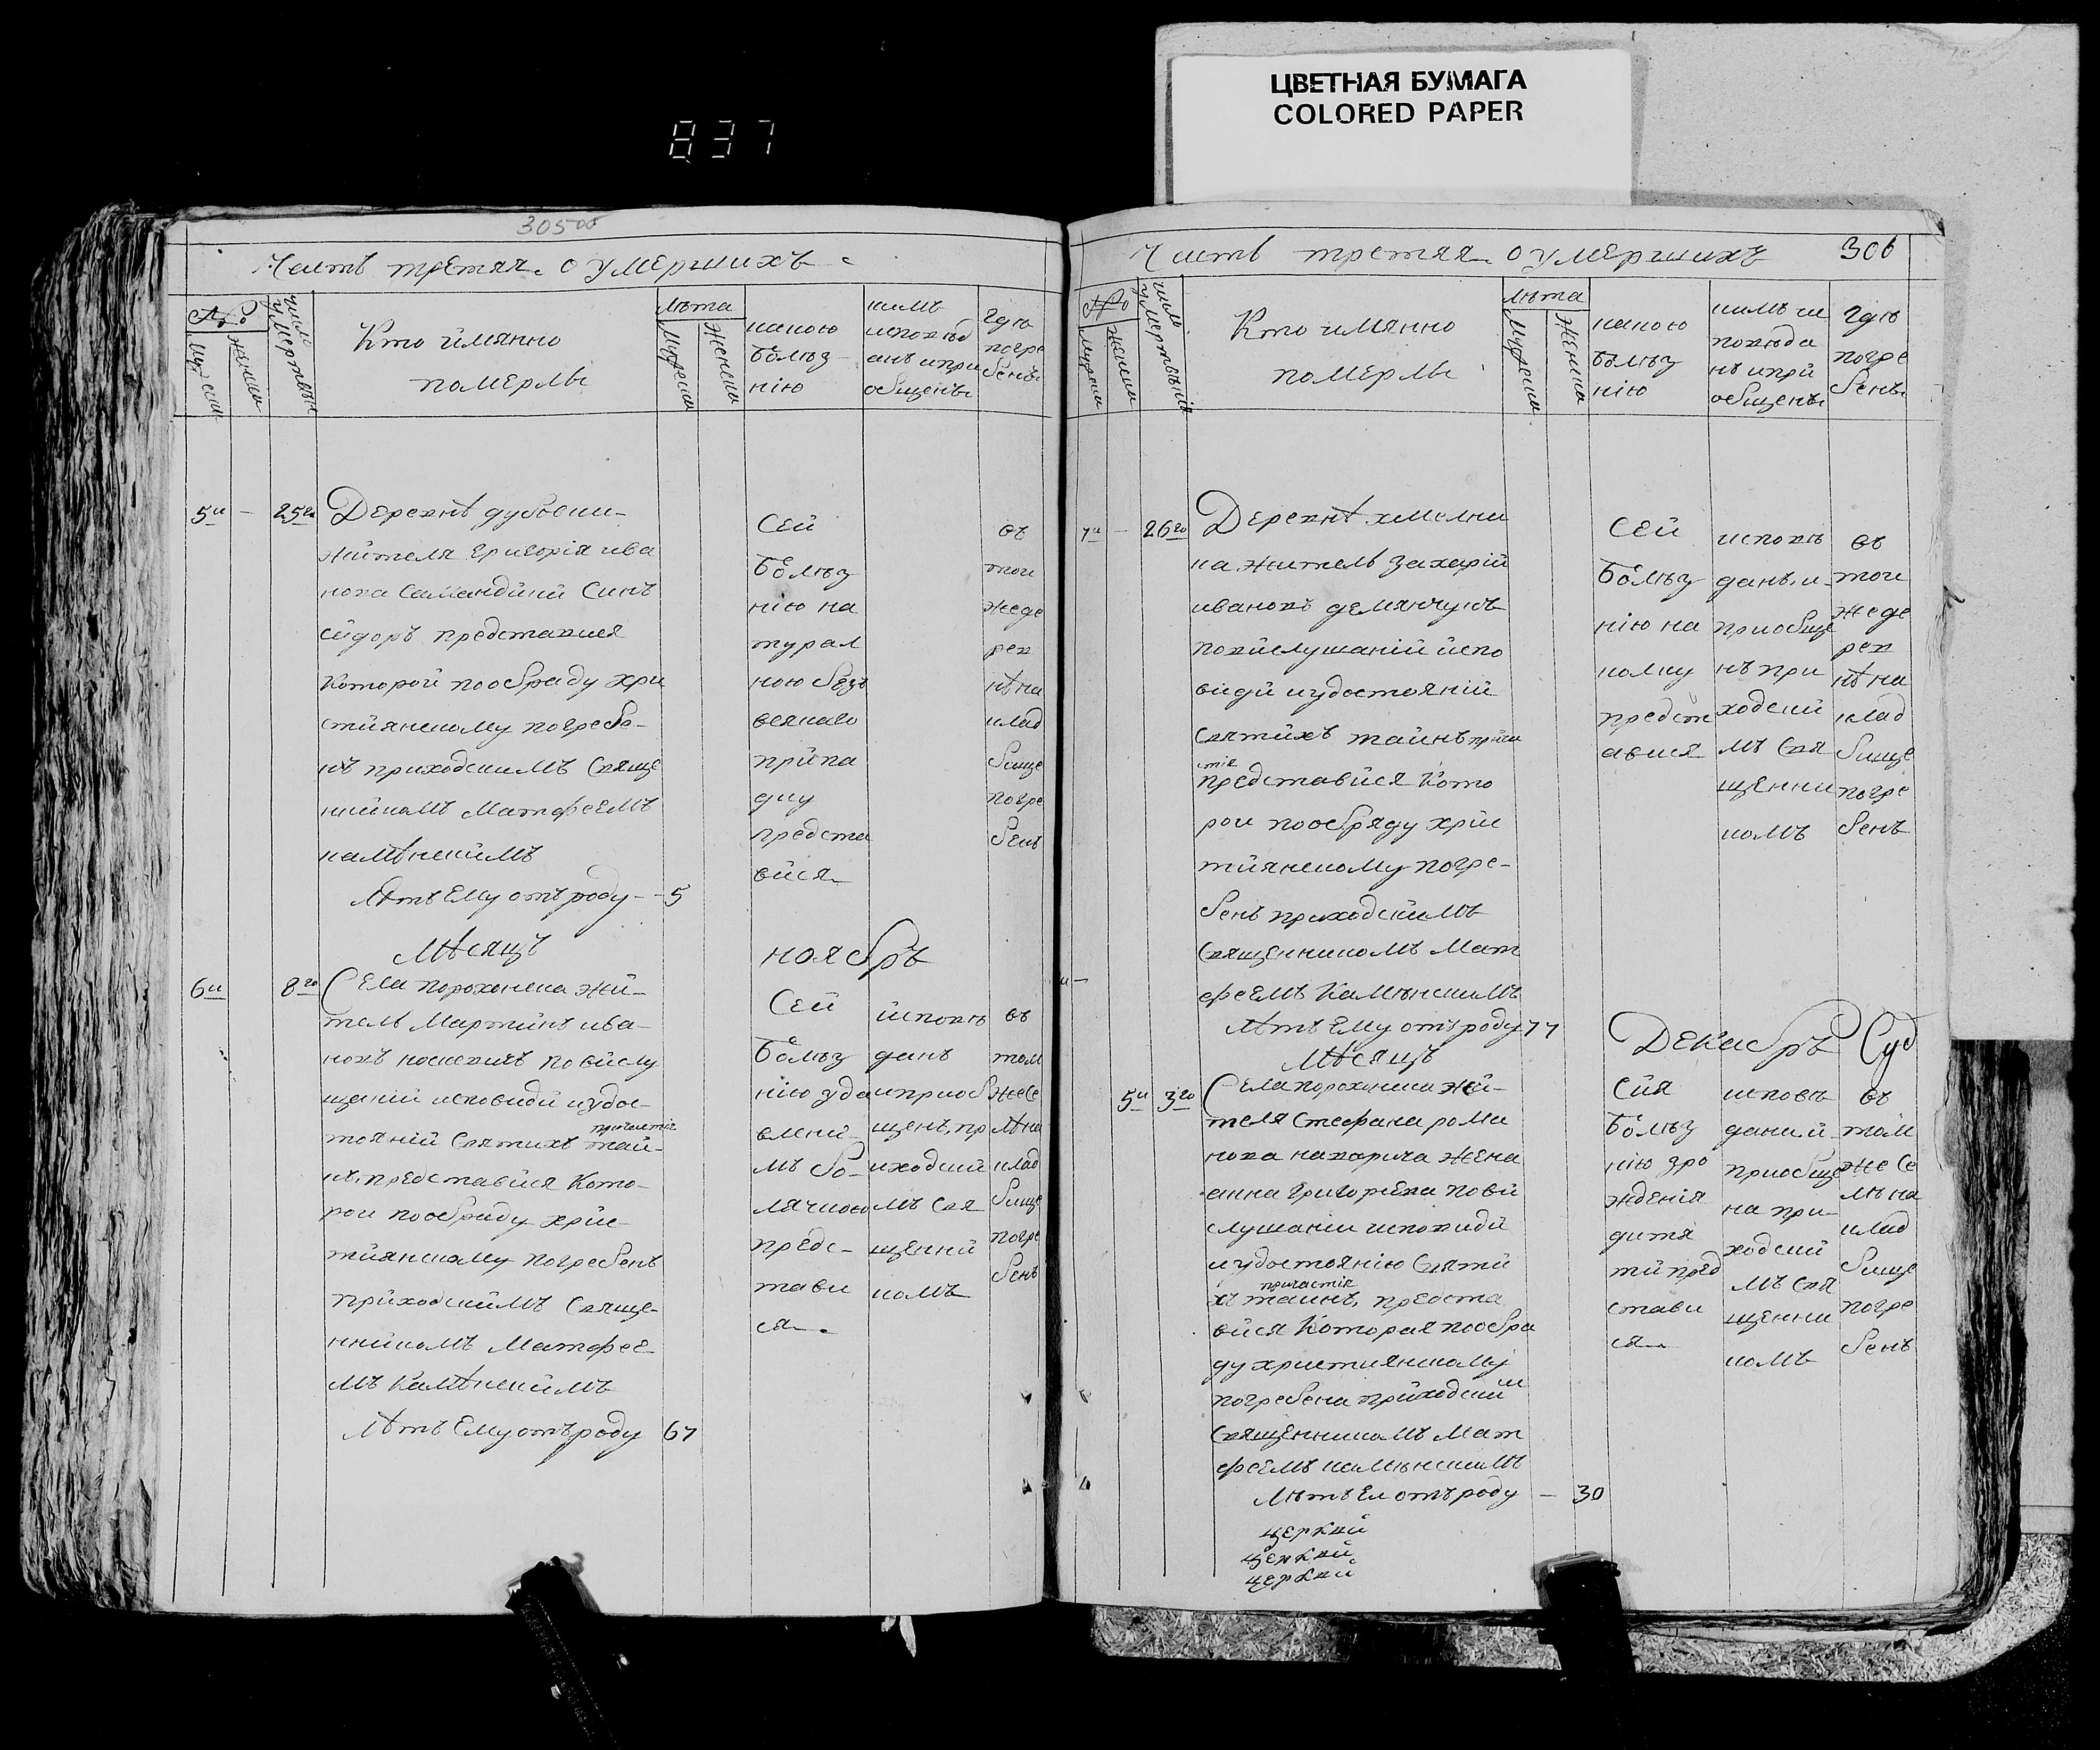 ЦВЕТНАЯ БУМАГА
COLORED PAPER
837
305об
Часть третяя о умершихъ
№
Мужеска
Женска
число умертвія
Кто имянно
померлъ
лѣта
Мужеска
Женска
какою
болѣз
нію
кимъ
исповѣд
анъ и при
общенъ
где
погре
бенъ
5и
25го
Деревнѣ дубовки
жителя Григорія ива
нова Самандійи Синъ
Сидоръ представися
Которой пообряду хри
стиянскому погребе-
нъ приходскимъ Свяще
нникомъ Матфеемъ
камѣнскимъ
Лѣтъ Ему отъ роду - 5
Сей
болѣз
нію на
турал
ною безъ
всякаго
припа
дку
предста
вися
въ
той
же де
рев
нѣ на
клад
бище
погре
бенъ
Мѣсяцъ ноябръ
6и
8го
Села порохонска жи-
тель Мартинъ ива-
новъ по вислу
шаніи исповиди иудос-
причастія
тояніи Святихъ тай-
нъ, представися Кото-
рои пообряду хрис
тиянскому погребенъ
приходскимъ Свяще-
нникомъ Матфее
мъ Камѣнскимъ
Лѣтъ Ему отъ роду 67
Сей
болѣз
нію уда
влені
мъ бо-
лячкою
предс-
тави
ся
исповѣ
данъ
и приоб
щенъ, пр
иходскі
мъ Свя
щенни
комъ
въ
том
же се
лѣ на
клад
бище
погре
бенъ
Часть третяя о умершихъ
306
№
Мужеска
Женска
число умертвія
Кто имянно
померлъ
лѣта
Мужеска
Женска
какою
болѣз
нію
кимъ и
повѣда
нъ и при
общенъ
где
погре
бенъ
7и
26го
Деревнѣ хмелни
ка житель Захарій
ивановъ демянчукъ
по вислушаніи испо
види и удостояніи
Святихъ таинъ прича
стія
представися Кото
рои пообряду хрис
тиянскому погре-
бенъ приходскимъ
Священникомъ Мат
феемъ Камѣнскимъ
Лѣтъ Ему отъ роду 77
Сей
болѣз
нію на
колку
предст
авися
исповѣ
данъ, и
приобще
нъ при
ходскі
мъ Свя
щенни
комъ
въ
той
же де
рев
нѣ на
клад
бище
погре
бенъ
Мѣсяцъ Декабръ
5и
3го
Села порохонска жи-
теля Стефана рома
нова жена
анна Григорѣва пови
слушаніи исповиди
и удостоянію Святи
причастія
хъ таинъ, предста
вися Которая пообра
ду християнскому
погребена приходским
Священникомъ Мат
феемъ камѣнскимъ
Лѣтъ Ей отъ роду - 30
Сія
болѣз
нію зро
жденія
дитя
ти пред
стави
ся
исповѣ
дана, и
приобще
на при-
ходскі
мъ Свя
щенни
комъ
въ
том
же се
лѣ на
клад
бище
погре
бенъ
церкви
церкви
церкви